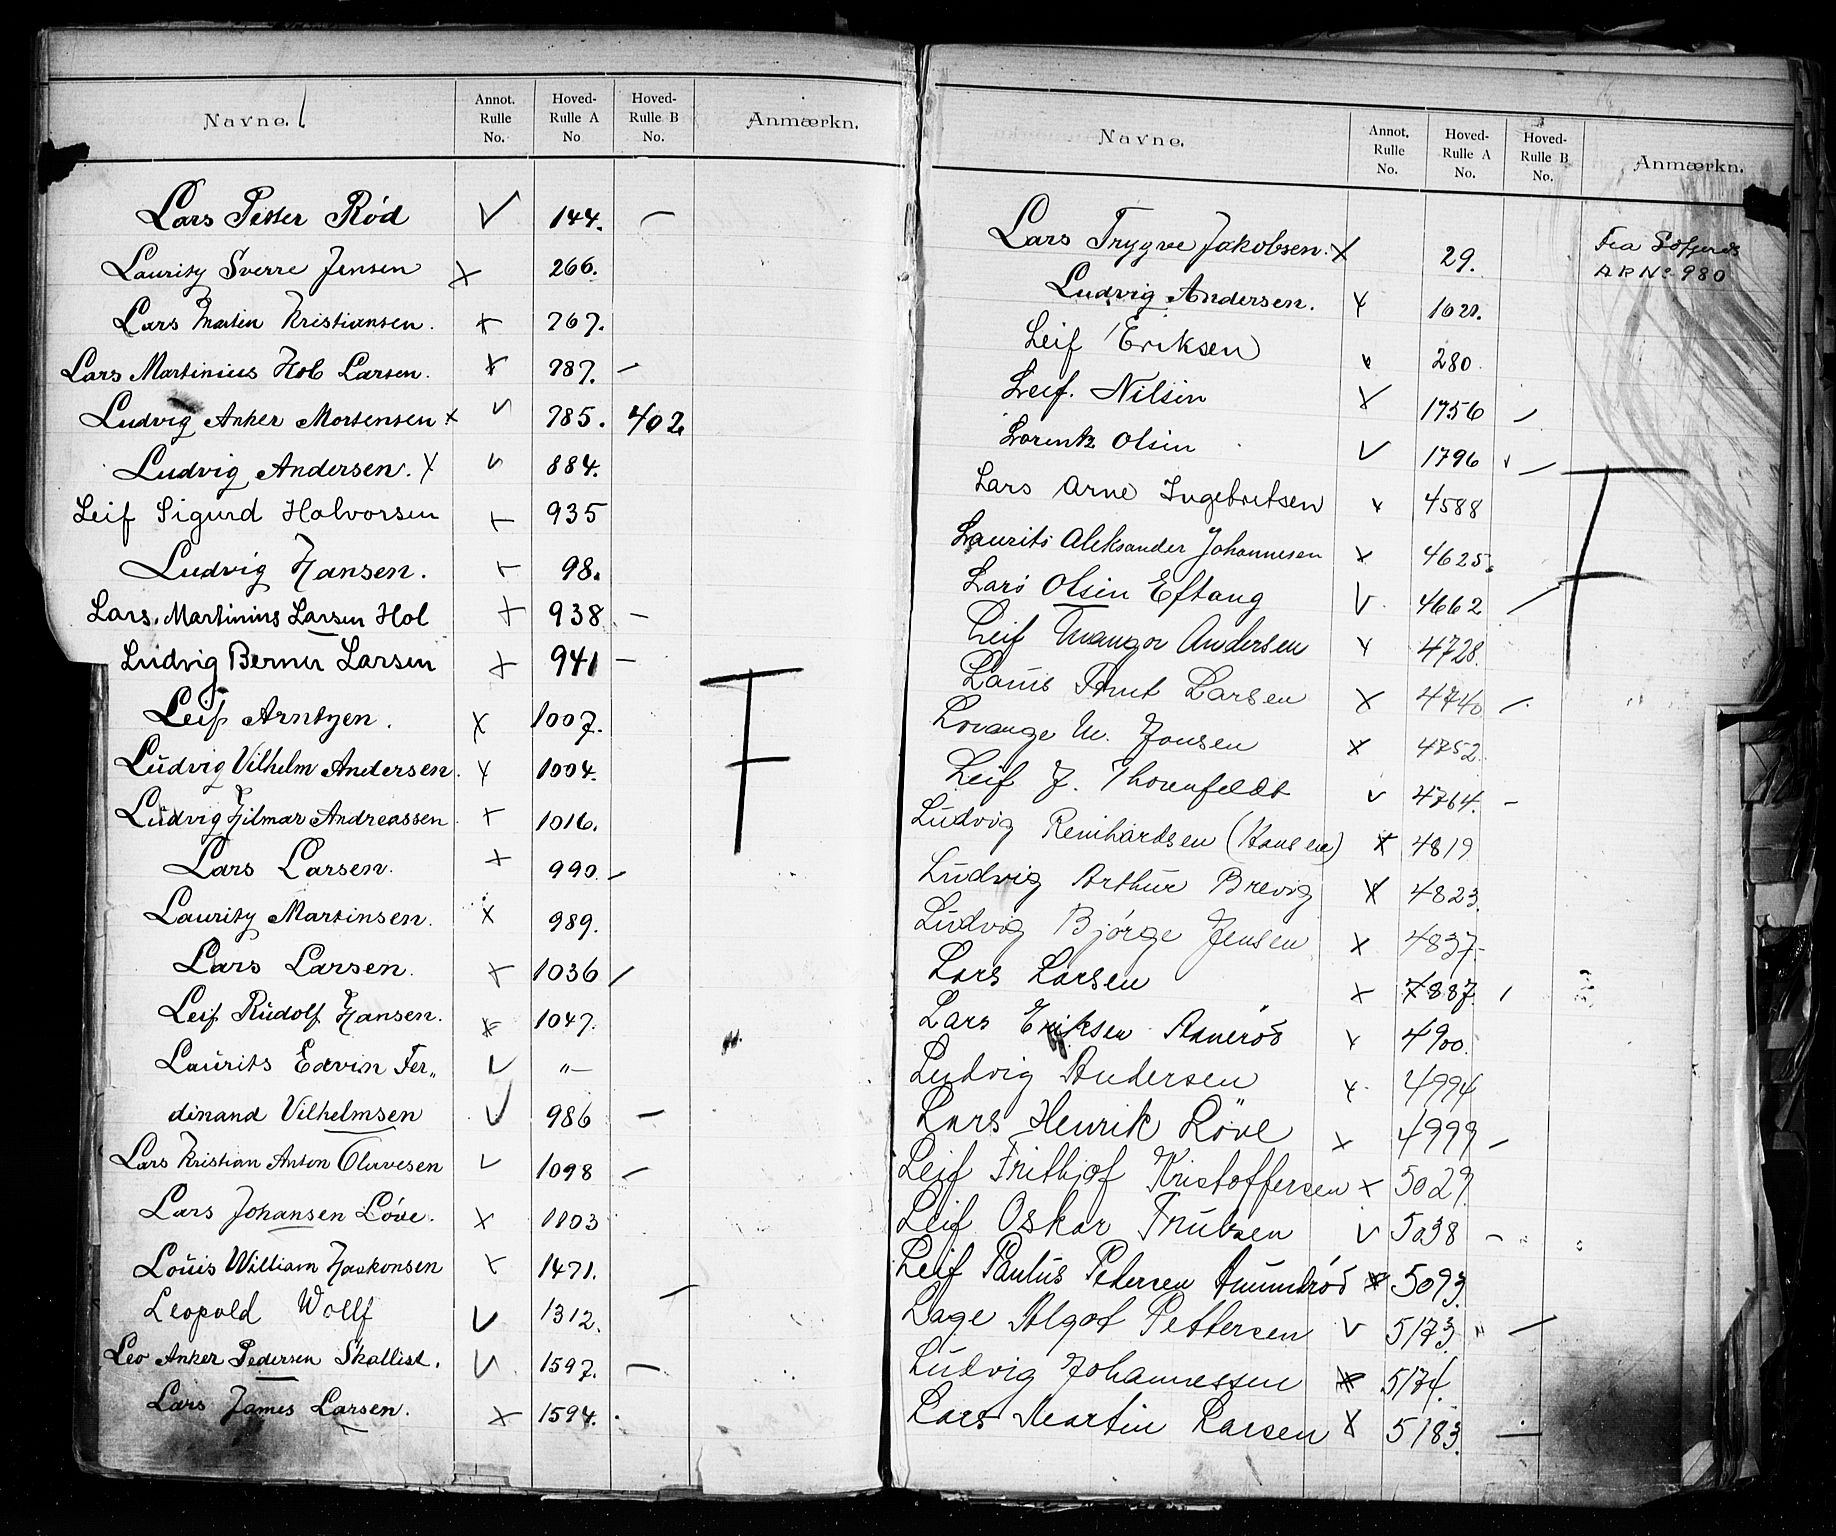 Navne. L Annot. Rulle No. Hoved-Rulle A No Hoved-Rulle B No. Anmærkn.
Lars Petter Rød V 144. —
Lauritz Sverre Jensen X 266.
Lars Martin Kristiansen. X 767.
Lars Martinius Hol Larsen. X 787. —
Ludvig Anker Mortensen X V 785. 402
Ludvig Andersen. X V 884.
Leif Sigurd Halvorsen X 935
Ludvig Hansen. X 98.
Lars. Martinius Larsen Hol X 938 —
Ludvig Berner Larsen X 941 —
Leif Arntzen. X 1007.
Ludvig Vilhelm Andersen. X 1004.
Ludvig Hilmar Andreassen X 1016.
Lars Larsen. X 990. —
Lauritz Martinsen. X 989.
Lars Larsen. X 1036 —
Leif Rudolf Hansen. X 1047.
Laurits Edvin Fer„ V „—
dinand Vilhelmsen V 986 —
Lars Kristian Anton Olavesen V 1098 —
Lars Johansen Löve. X 1103
Louis William Haakonsen X 1471.
Leopold Wollf V 1312. —
Leo Anker Pedersen Skallist. V 1597. —
Lars James Larsen. X 1594.
F
Navne. Annot. Rulle No. Hoved-Rulle A No. Hoved-Rulle B No. Anmærkn.
Lars Trygve Jakobsen. X 29. Fra
A R No 980
Ludvig Andersen. X
Leif Eriksen X 280.
Leif. Nilsen X 1756 —
Lorentz Olsen V 1796 V —
Lars Arne Ingebretsen X 4588
Laurits Aleksander Johannesen X 4625.
Lars Olsen Eftang V. 4662 —
Leif Andersen X 4728.
Louis Larsen X 4740 —
M. Jonsen X 4752.
Leif J. Thorenfeldt V 4764. —
Ludvig Reinhardsen (Hansen) X 4819
Ludvig Arthur Brevig X 4823.
Ludvig Bjørge Jensen X 4837.
Lars Larsen X 7887. —
Lars Eriksen X 4900.
Ludvig Andersen X. 4994
Lars Henrik Löve X 4999 —
Leif Frithjof Kristoffersen X 5029
Leif Oskar Trulsen V 5038 —
Leif Paulus Pedersen Amundrød X 5093.
Lage Algot Pettersen V 5173. " —
Ludvig Johannessen X 5174.
Lars Martin Larsen X 5183. —
F